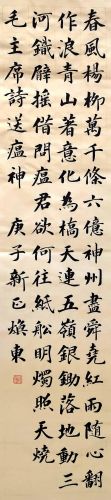 春風楊柳萬千條六億神州盡舜堯紅雨隨心翻
作浪青山著意化為橋天連五嶺銀鋤落地動三
河鐵臂搖借問瘟君欲何往紙船明燭照天燒
毛主席詩送瘟神 庚子新正煥東